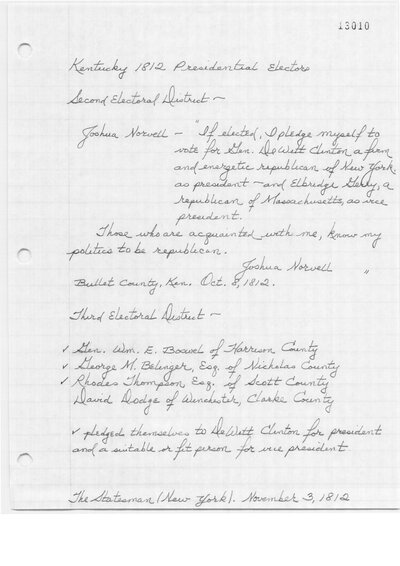 13010
Kentucky 1812 Presidential Electors
Second Electoral District ~
Joshua Norvell – "If elected, I pledge myself to
vote for Gen. DeWett Clinton a firm
and energetic republican of New York,
as president – and Elbridge Gerry, a
republican of Massachusetts, as vice
president.
Those who are acquainted with me, know my
politics to be republican.
Joshua Norvell "
Bullet County, Ken. Oct. 8, 1812.
Third Electoral District ~
✓ Gen. Wm. E. Boswel of Harrison County
✓ George M. Belinger, Esq. of Nicholas County
✓ Rhodes Thompson Esq. of Scott County
David Dodge of Winchester, Clarke County
✓ pledged themselves to DeWett Clinton for president
and a suitable or fit person for vice president
The Statesman (New York). November 3, 1812